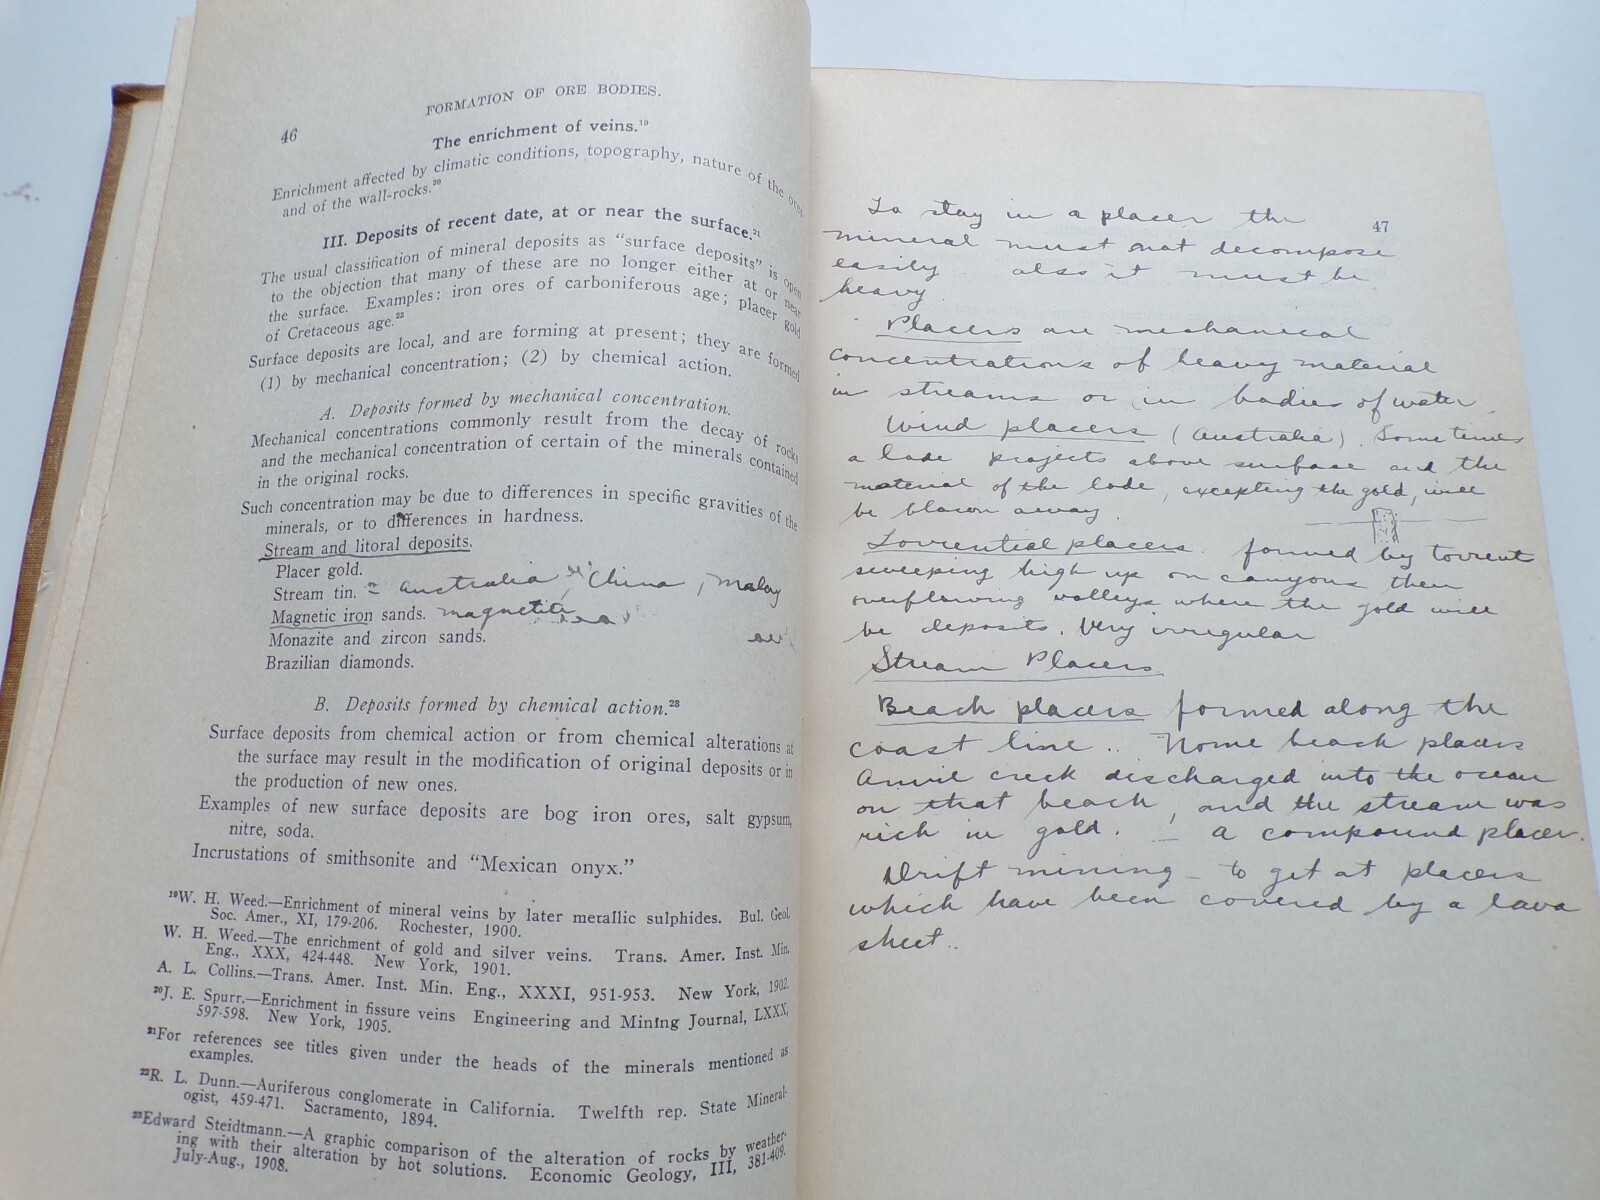 46
FORMATION OF ORE BODIES.
The enrichment of veins.¹⁹
Enrichment affected by climatic conditions, topography, nature of the ores
and of the wall-rocks.²⁰
III. Deposits of recent date, at or near the surface.²¹
The usual classification of mineral deposits as "surface deposits" is open
to the objection that many of these are no longer either at or near
the surface. Examples: iron ores of carboniferous age; placer gold
of Cretaceous age.²²
Surface deposits are local, and are forming at present; they are formed
(1) by mechanical concentration; (2) by chemical action.
A. Deposits formed by mechanical concentration.
Mechanical concentrations commonly result from the decay of rocks
and the mechanical concentration of certain of the minerals contained
in the original rocks.
Such concentration may be due to differences in specific gravities of the
minerals, or to differences in hardness.
Stream and litoral deposits.
Placer gold.
Stream tin. = Australia, China, Malay
Magnetic iron sands. magnetite
Monazite and zircon sands.
Brazilian diamonds.
B. Deposits formed by chemical action.²³
Surface deposits from chemical action or from chemical alterations at
the surface may result in the modification of original deposits or in
the production of new ones.
Examples of new surface deposits are bog iron ores, salt gypsum,
nitre, soda.
Incrustations of smithsonite and "Mexican onyx."
¹⁹W. H. Weed.—Enrichment of mineral veins by later metallic sulphides. Bul. Geol.
Soc. Amer., XI, 179-206. Rochester, 1900.
W. H. Weed.—The enrichment of gold and silver veins. Trans. Amer. Inst. Min.
Eng., XXX, 424-448. New York, 1901.
A. L. Collins.—Trans. Amer. Inst. Min. Eng., XXXI, 951-953. New York, 1902.
²⁰J. E. Spurr.—Enrichment in fissure veins Engineering and Mining Journal, LXXX,
597-598. New York, 1905.
²¹For references see titles given under the heads of the minerals mentioned as
examples.
²²R. L. Dunn.—Auriferous conglomerate in California. Twelfth rep. State Mineral-
ogist, 459-471. Sacramento, 1894.
²³Edward Steidtmann.—A graphic comparison of the alteration of rocks by weather-
ing with their alteration by hot solutions. Economic Geology, III, 381-409.
July-Aug., 1908.
47
To stay in a placer the
mineral must not decompose
easily also it must be
heavy.
Placers are mechanical
concentrations of heavy material
in streams or in bodies of water.
Wind placers (Australia). Sometimes
a lode projects above surface and the
material of the lode, excepting the gold, will
be blown away.
Torrential placers. formed by torrent
sweeping high up on canyons then
overflowing valleys where the gold will
be deposits. Very irregular
Stream Placers
Beach placers formed along the
coast line.. Nome beach placers
Anvil creek discharged into the ocean
on that beach, and the stream was
rich in gold. — a compound placer.
Drift mining – to get at placers
which have been covered by a lava
sheet..